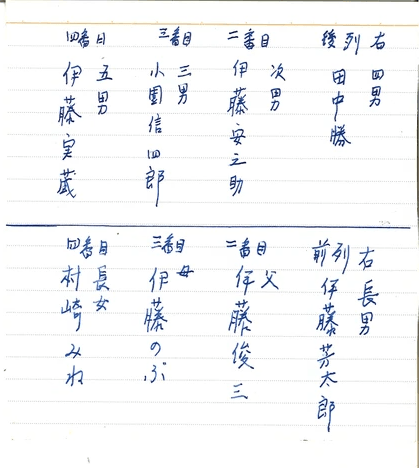 後列右 四男
田中勝
二番目 次男
伊藤安之助
三番目 三男
小園信四郎
四番目 五男
伊藤実蔵
前列右 長男
伊藤芳太郎
二番目 父
伊藤俊三
三番目 母
伊藤のぶ
四番目 長女
村崎みね